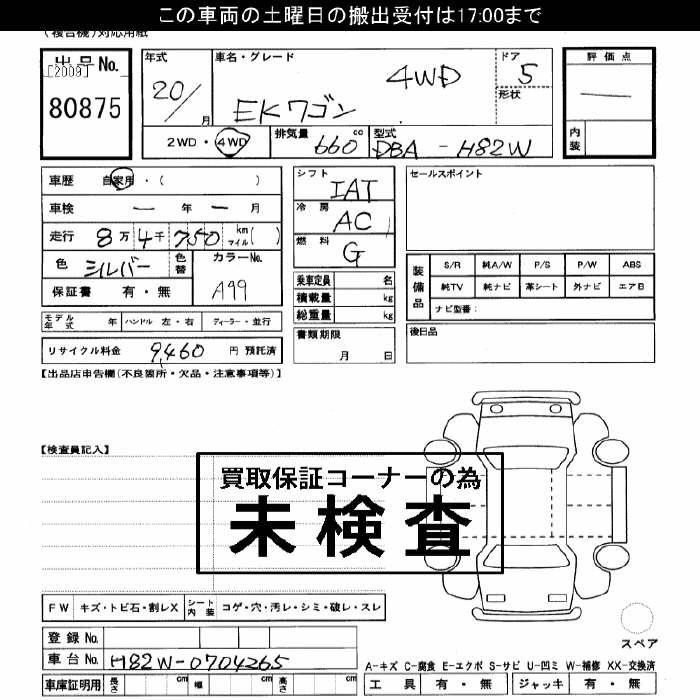 この車両の土曜日の搬出受付は17:00まで
(複合機)対応用紙
出品 No. 年式 車名・グレード ドア 評価点
[2009] 4WD 5
80875 20/ 月 EKワゴン 形状 —
2WD・4WD 排気量 660 cc 型式 DBA - H82W 内装
車歴 自家用・( ) シフト IAT セールスポイント
車検 — 年 — 月 冷房 AC
走行 8万4千750 km マイル( ) 燃料 G
色 シルバー 色替 カラーNo. 装備品 S/R 純A/W P/S P/W ABS
保証書 有・無 A99 乗車定員 名 純TV 純ナビ 革シート 外ナビ エアB
積載量 kg ナビ型番:
モデル年式 年 ハンドル 左・右 ディーラー・並行 総重量 kg
リサイクル料金 9,460 円 預託済 書類期限 月 日 後日品
【出品店申告欄(不良箇所・欠品・注意事項等)】
【検査員記入】
買取保証コーナーの為
未検査
FW キズ・トビ石・割レX シート内装 コゲ・穴・汚レ・シミ・破レ・スレ
登録 No. スペア
車台 No. H82W-0704265
A-キズ C-腐食 E-エクボ S-サビ U-凹ミ W-補修 XX-交換済
車庫証明用 長さ cm 幅 cm 高さ cm 工具 有・無 ジャッキ 有・無